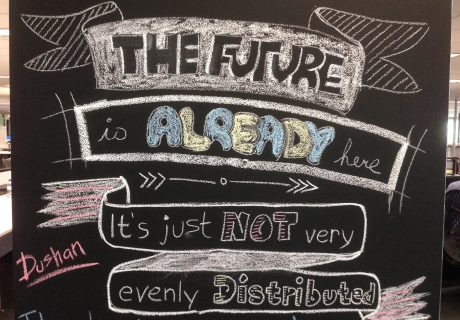 THE FUTURE
is ALREADY here
It's just NOT very
Dushan
evenly Distributed